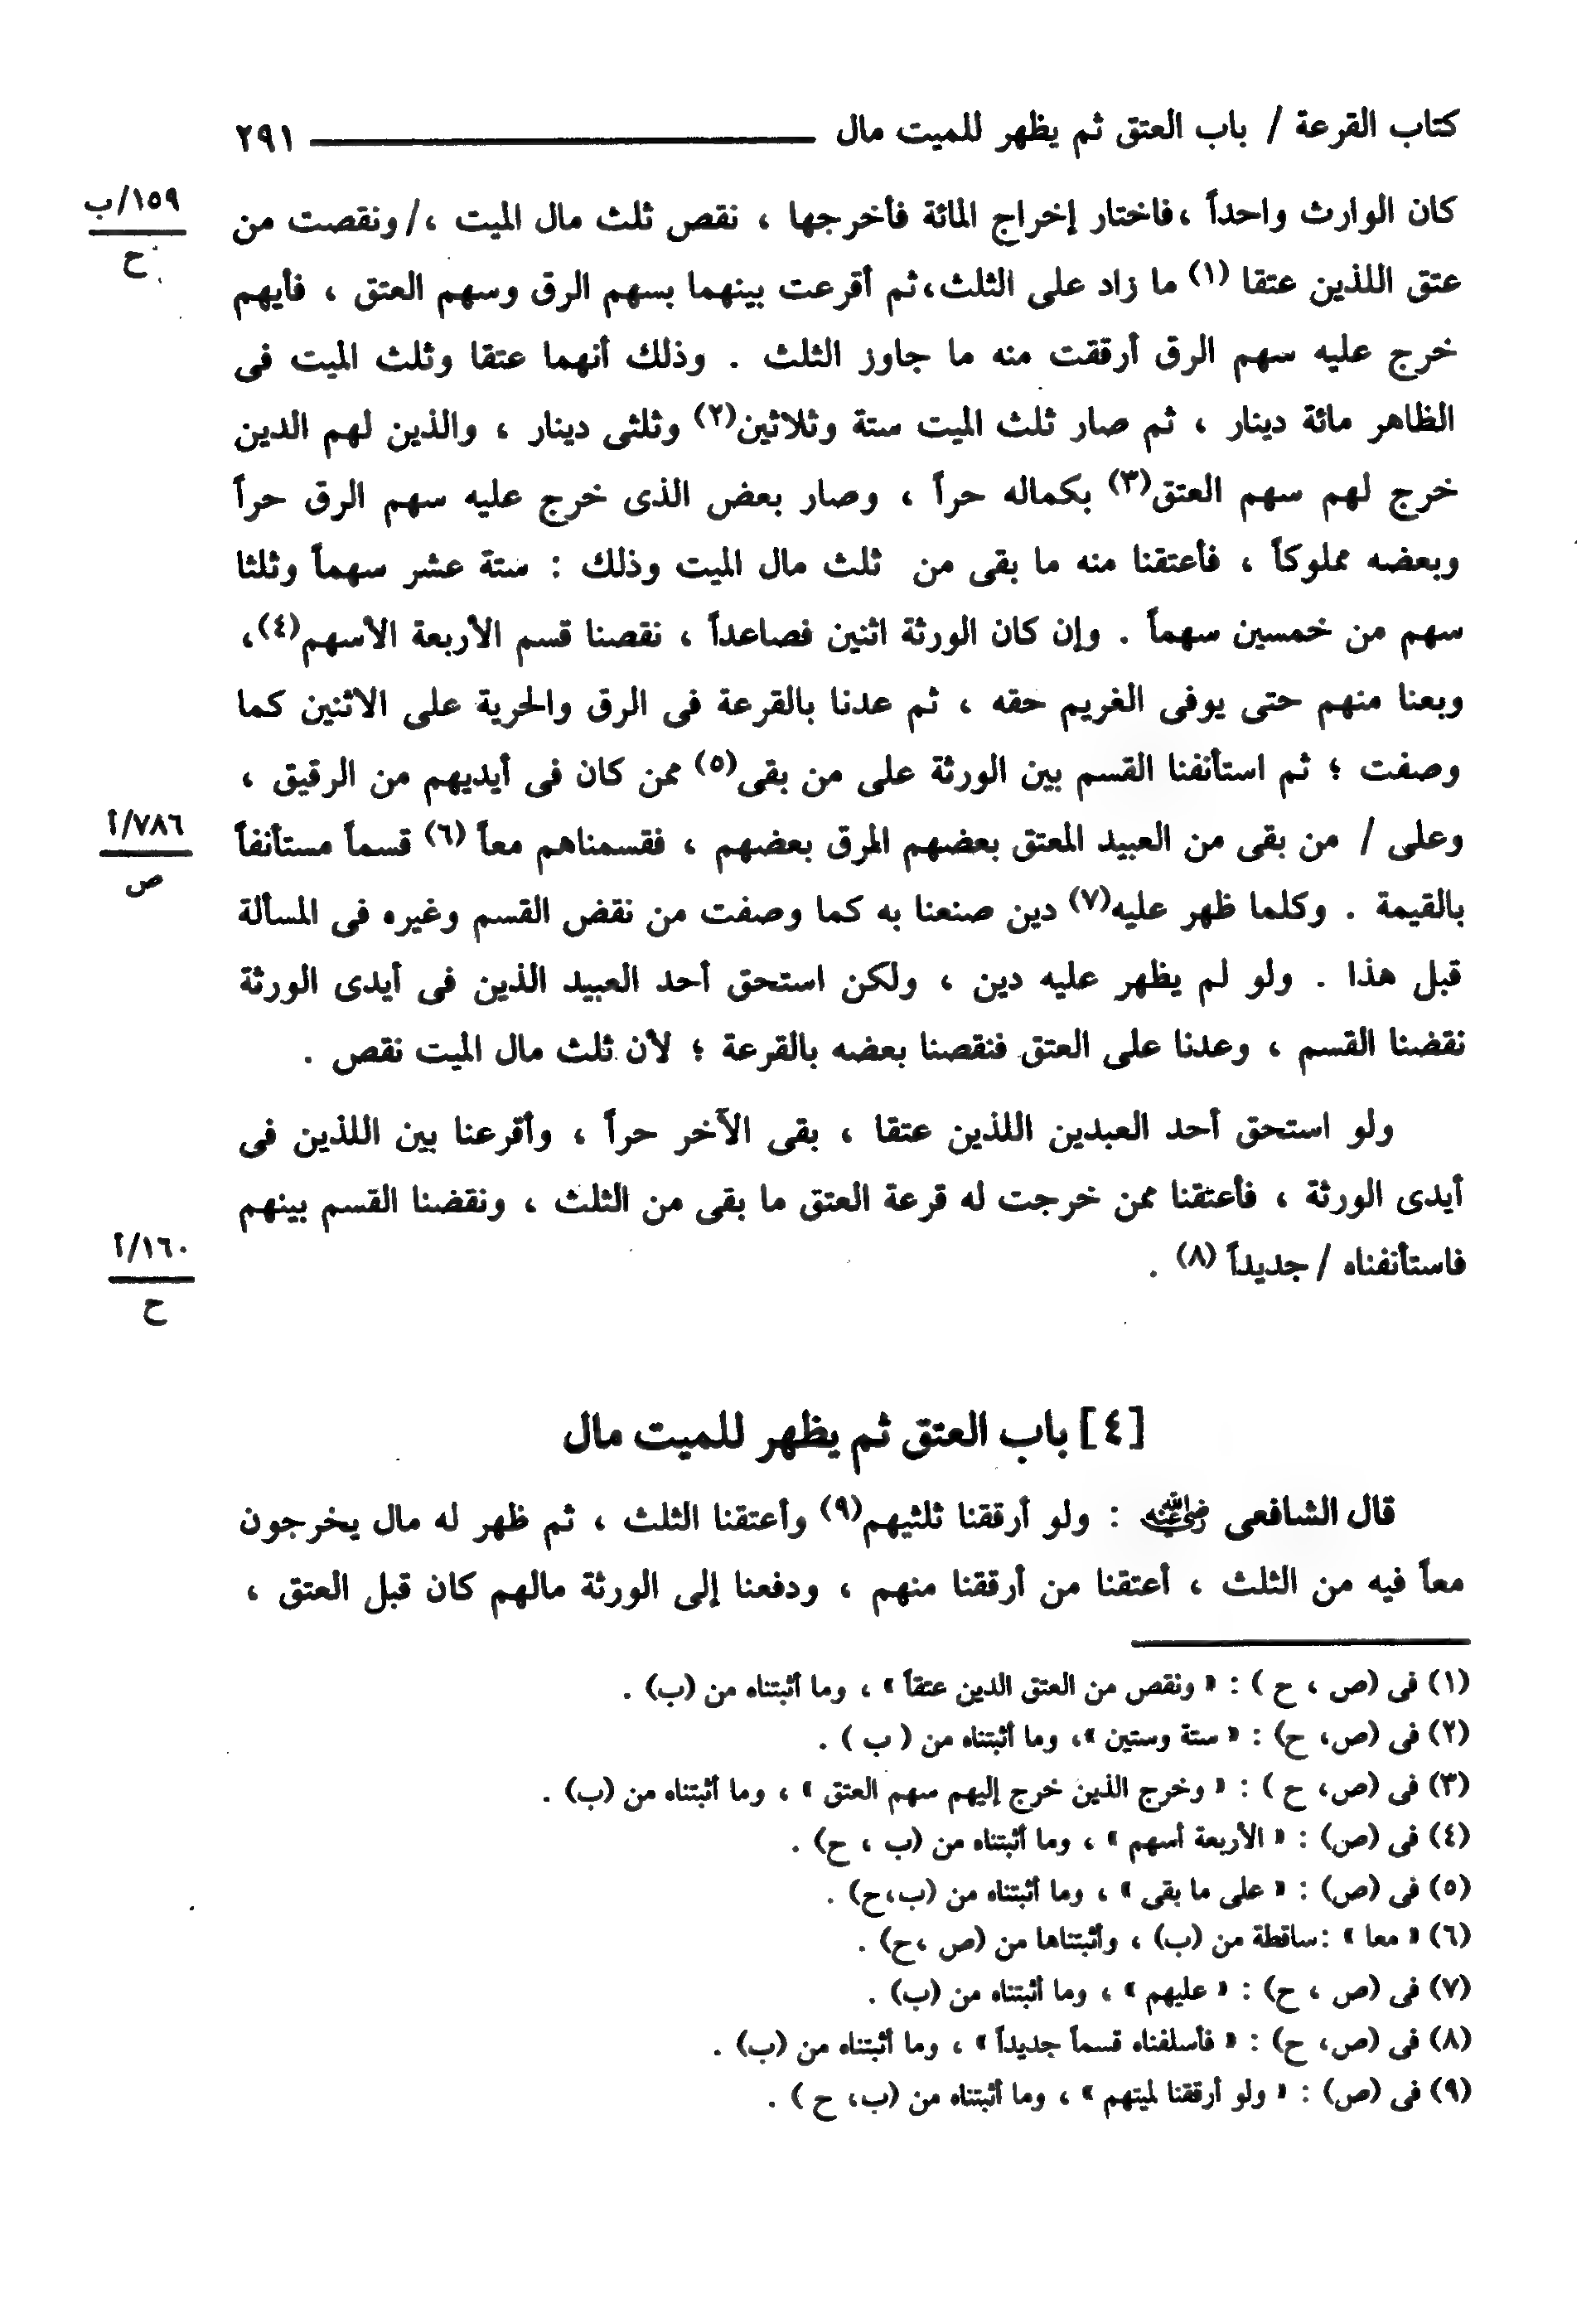 كتاب القرعة / باب العتق ثم يظهر للميت مال ٢٩١
١٥٩/ب
ح
كان الوارث واحداً ،فاختار إخراج المائة فأخرجها ، نقص ثلث مال الميت ،/ونقصت من
عتق اللذين عتقا (١) ما زاد على الثلث،ثم أقرعت بينهما بسهم الرق وسهم العتق ، فأيهم
خرج عليه سهم الرق أرققت منه ما جاوز الثلث . وذلك أنهما عتقا وثلث الميت فى
الظاهر مائة دينار ، ثم صار ثلث الميت ستة وثلاثين(٢) وثلثى دينار ، والذين لهم الدين
خرج لهم سهم العتق(٣) بكماله حراً ، وصار بعض الذى خرج عليه سهم الرق حراً
وبعضه مملوكاً ، فأعتقنا منه ما بقى من ثلث مال الميت وذلك : ستة عشر سهماً وثلثا
سهم من خمسين سهماً . وإن كان الورثة اثنين فصاعداً ، نقصنا قسم الأربعة الأسهم(٤)،
وبعنا منهم حتى يوفى الغريم حقه ، ثم عدنا بالقرعة فى الرق والحرية على الاثنين كما
وصفت ؛ ثم استأنفنا القسم بين الورثة على من بقى(٥) ممن كان فى أيديهم من الرقيق ،
٧٨٦/أ
ص
وعلى / من بقى من العبيد المعتق بعضهم المرق بعضهم ، فقسمناهم معاً (٦) قسماً مستأنفاً
بالقيمة . وكلما ظهر عليه(٧) دين صنعنا به كما وصفت من نقض القسم وغيره فى المسألة
قبل هذا . ولو لم يظهر عليه دين ، ولكن استحق أحد العبيد الذين فى أيدى الورثة
نقضنا القسم ، وعدنا على العتق فنقصنا بعضه بالقرعة ؛ لأن ثلث مال الميت نقص .
ولو استحق أحد العبدين اللذين عتقا ، بقى الآخر حراً ، وأقرعنا بين اللذين فى
أيدى الورثة ، فأعتقنا ممن خرجت له قرعة العتق ما بقى من الثلث ، ونقضنا القسم بينهم
١٦٠/أ
ح
فاستأنفناه / جديداً (٨) .
[٤] باب العتق ثم يظهر للميت مال
قال الشافعى رضي الله عنه : ولو أرققنا ثلثيهم(٩) وأعتقنا الثلث ، ثم ظهر له مال يخرجون
معاً فيه من الثلث ، أعتقنا من أرققنا منهم ، ودفعنا إلى الورثة مالهم كان قبل العتق ،
(١) فى (ص ، ح ) : « ونقص من العتق الدين عتقاً » ، وما أثبتناه من (ب) .
(٢) فى (ص، ح) : « ستة وستين »، وما أثبتناه من ( ب ) .
(٣) فى (ص، ح ) : « وخرج الذين خرج إليهم سهم العتق » ، وما أثبتناه من (ب) .
(٤) فى (ص) : « الأربعة أسهم » ، وما أثبتناه من (ب ، ح) .
(٥) فى (ص) : « على ما بقى » ، وما أثبتناه من (ب،ح) .
(٦) « معا » :ساقطة من (ب) ، وأثبتناها من (ص ،ح) .
(٧) فى (ص ، ح) : « عليهم » ، وما أثبتناه من (ب) .
(٨) فى (ص، ح) : « فأسلفناه قسماً جديداً » ، وما أثبتناه من (ب) .
(٩) فى (ص) : « ولو أرققنا لميتهم » ، وما أثبتناه من (ب، ح ) .